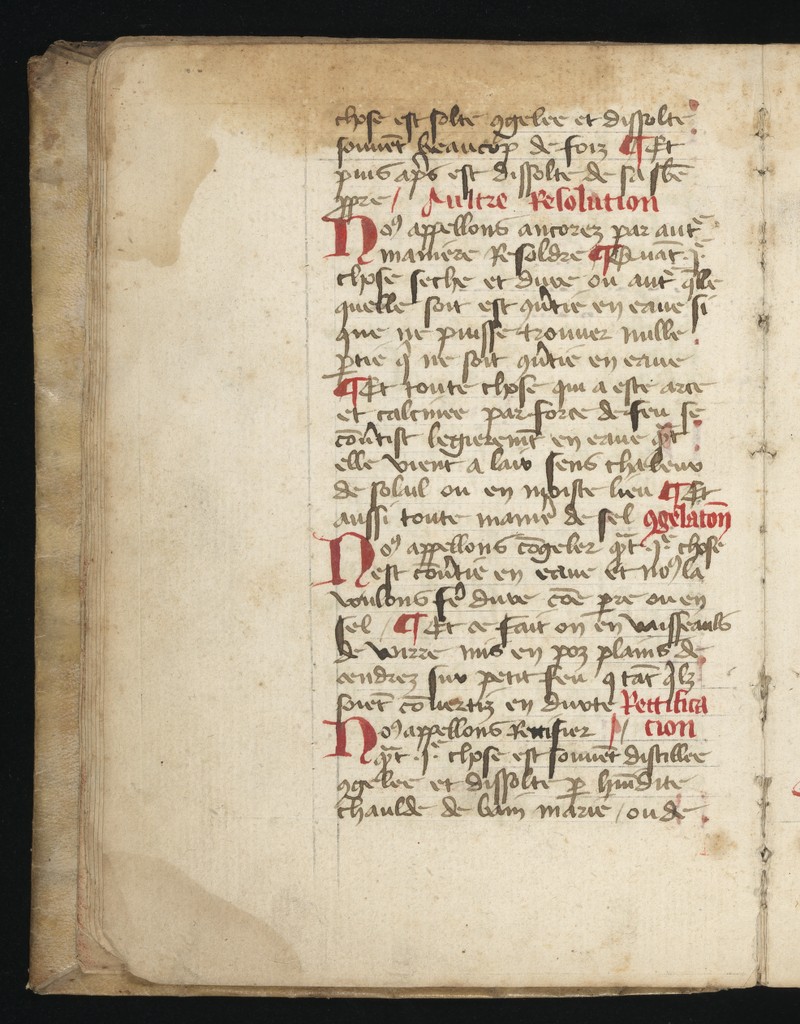 chose est solte ꝯgelee et dissolte
souuēt beaucop de foiz ¶ Et
puis ap̄s est dissolte de sa sbē
ꝓpre / Aultre Resolution
Noꝯ appellons ancorez par autᵉ
maniere Resoldre ¶ Quāt .jᵉ.
chose seche et dure ou autᵉ q̄lle
quelle soit est ꝯūtie en eaue si
que ne puisse trouuer nulle
ꝑtie qⁱ ne soit ꝯūtie en eaue
¶ Et toute chose qui a este arce
et calcinee par force de feu se
cōūtist legieremēt en eaue qᵃ̄t
elle vient a lair sens chaleur
de solul ou en moiste lieu ¶ Et
aussi toute manieᵉ de sel ꝯgelatōn
Noꝯ appellons cōgeler qᵃ̄t .jᵉ. chose
est cōūtie en eaue et noꝯ la
voulons feᵉ dure cōe pᵉre ou en
sel / ¶ Et ce fait on en vaisseauls
de voirre mis en poz plains de
cendrez sur petit feu q tāt qⁱlz
soiēt conuertiz en durte Rettifica
Noꝯ appellons Rettifier // cion
qᵃ̄t .jᵉ. chose est souuēt distillee
ꝯgelee et dissolte ꝑ hūidite
chaulde de bain marie / ou de